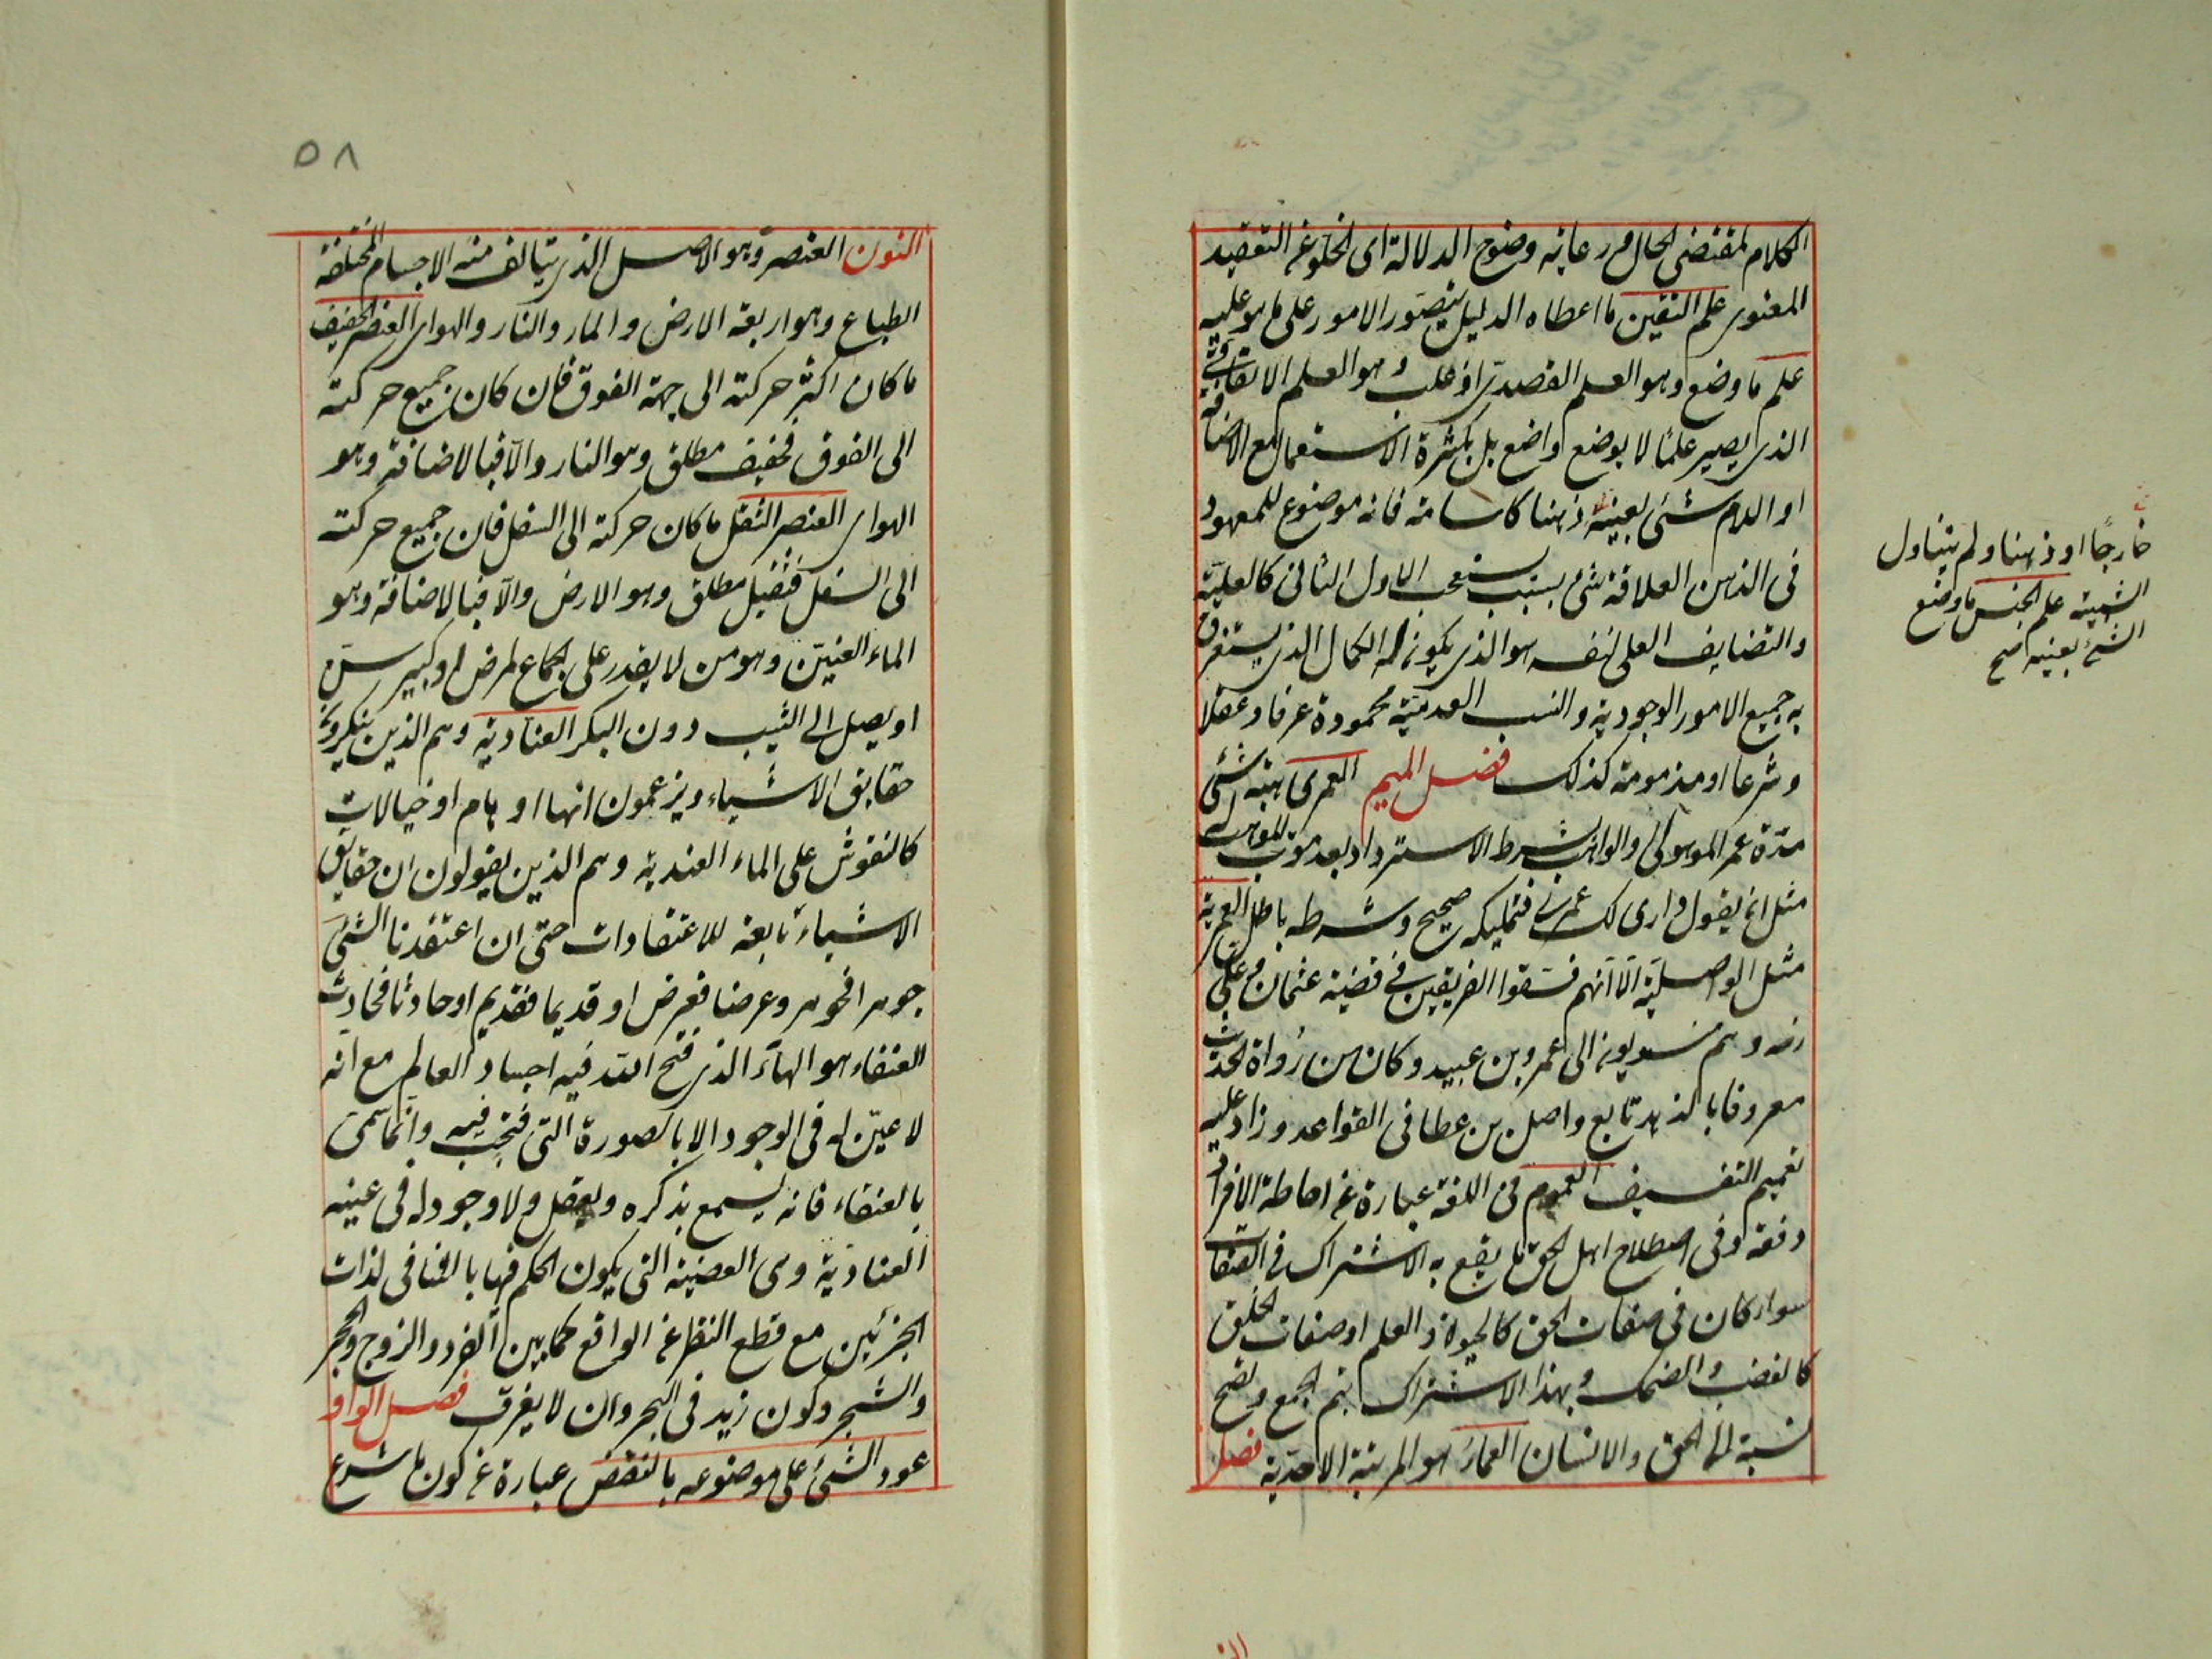 الكلام لمقتضى الحال ورعاية وضوح الدلالة اى الخلو عن التعقيد
المعنوى علم اليقين ما اعطاه الدليل بتصور الامور على ما هو عليه
علم ما وضع وهو العلم القصدى او غلب وهو العلم الاتفاقى
الذى يصير علمًا لا بوضع واضع بل بكثرة الاستعمال مع الاضافة
او اللام شئ بعينه ذهنا كاسامة فانه موضوع للمعهود
فى الذهن العلاقة شئ بسبب يستصحب الاول الثانى كالعلية
والتضايف العلى لنفسه هو الذى يكون له الكمال الذى يستغرق
به جميع الامور الوجودية والنسب العدمية محمودة عرفا وعقلا
وشرعا او مذمومة كذلك فصل الميم العمرى هبة شئ
مدة عمر الموهوب له والواهب بشرط الاسترداد بعد موت الموهوب له
مثل ان يقول دارى لك عمرى فتمليكه صحيح وشرطه باطل العمرية
مثل الواصلية الا انهم فسقوا الفريقين فى قضية عثمان وعلى
رضه وهم منسوبون الى عمرو بن عبيد وكان من رواة الحديث
معروفا بالزهد تابع واصل بن عطا فى القواعد وزاد عليه
تعميم التفسيق العموم فى اللغة عبارة عن احاطة الافراد
دفعة وفى اصطلاح اهل الحق ما يقع به الاشتراك فى الصفات
سواء كان فى صفات الحق كالحيوة والعلم او صفات الخلق
كالغضب والضحك وبهذا الاشتراك يتم الجمع وتصح
نسبته الى الحق والانسان العماء هو المرتبة الاحدية فصل
خارجًا او ذهنا ولم يتناول
الشبيه علم الجنس ما وضع
الشئ بعينه صح
٥٨
النون العنصر وهو الاصل الذى يتالف منه الاجسام المختلفة
الطباع وهو اربعة الارض والماء والنار والهواء العنصر الخفيف
ما كان اكثر حركته الى جهة الفوق فان كان جميع حركته
الى الفوق فخفيف مطلق وهو النار والا فبالاضافة وهو
الهواء العنصر الثقل ما كان حركته الى السفل فان جميع حركته
الى السفل فثقيل مطلق وهو الارض والا فبالاضافة وهو
الماء العنين وهو من لا يقدر على الجماع لمرض او كبير سن
او يصل الى الثيب دون البكر العنادية وهم الذين ينكرون
حقايق الاشياء ويزعمون انها اوهام او خيالات
كالنقوش على الماء العندية وهم الذين يقولون ان حقايق
الاشياء تابعة للاعتقادات حتى ان اعتقدنا الشئ
جوهرا فجوهر وعرضا فعرض او قديما فقديم او حادثا فحادث
العنقاء هو الهباء الذى فتح الله فيه اجساد العالم مع انه
لا عين له فى الوجود الا بالصورة التى فتحت فيه وانما سمى
بالعنقاء فانه يسمع بذكره ويعقل ولا وجود له فى عينه
العنادية وهى القضية التى يكون الحكم فيها بالتنافى لذات
الجزئين مع قطع النظر عن الواقع كما بين الفرد والزوج والحجر
والشجر وكون زيد فى البحر وان لا يغرق فصل الواو
عود الشئ على موضوعه بالنقض عبارة عن كون ما شرع